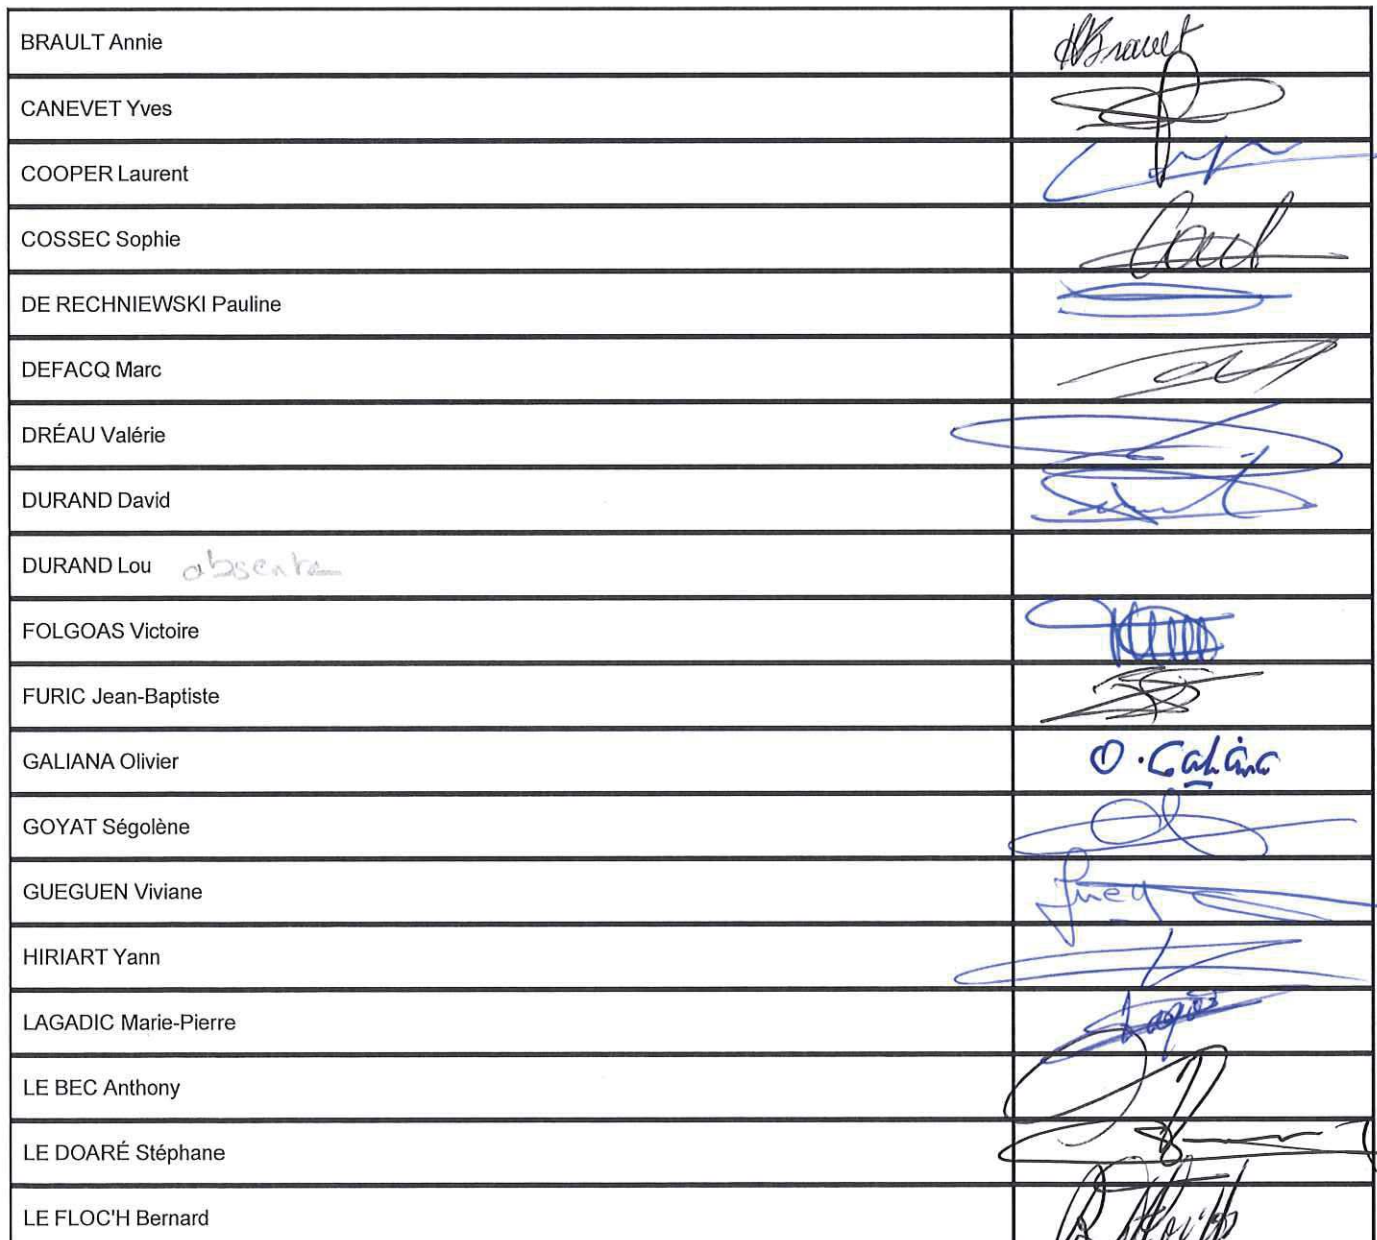 BRAULT Annie ABrault
CANEVET Yves
COOPER Laurent
COSSEC Sophie
DE RECHNIEWSKI Pauline
DEFACQ Marc
DRÉAU Valérie
DURAND David
DURAND Lou absente
FOLGOAS Victoire
FURIC Jean-Baptiste
GALIANA Olivier O. Galiana
GOYAT Ségolène
GUEGUEN Viviane
HIRIART Yann
LAGADIC Marie-Pierre
LE BEC Anthony
LE DOARÉ Stéphane
LE FLOC'H Bernard